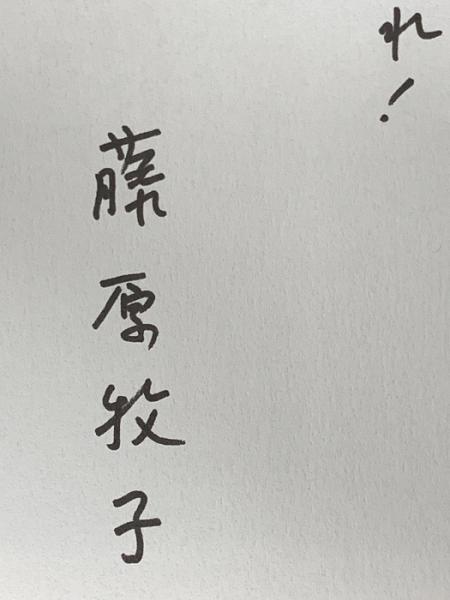 れ!
藤原牧子